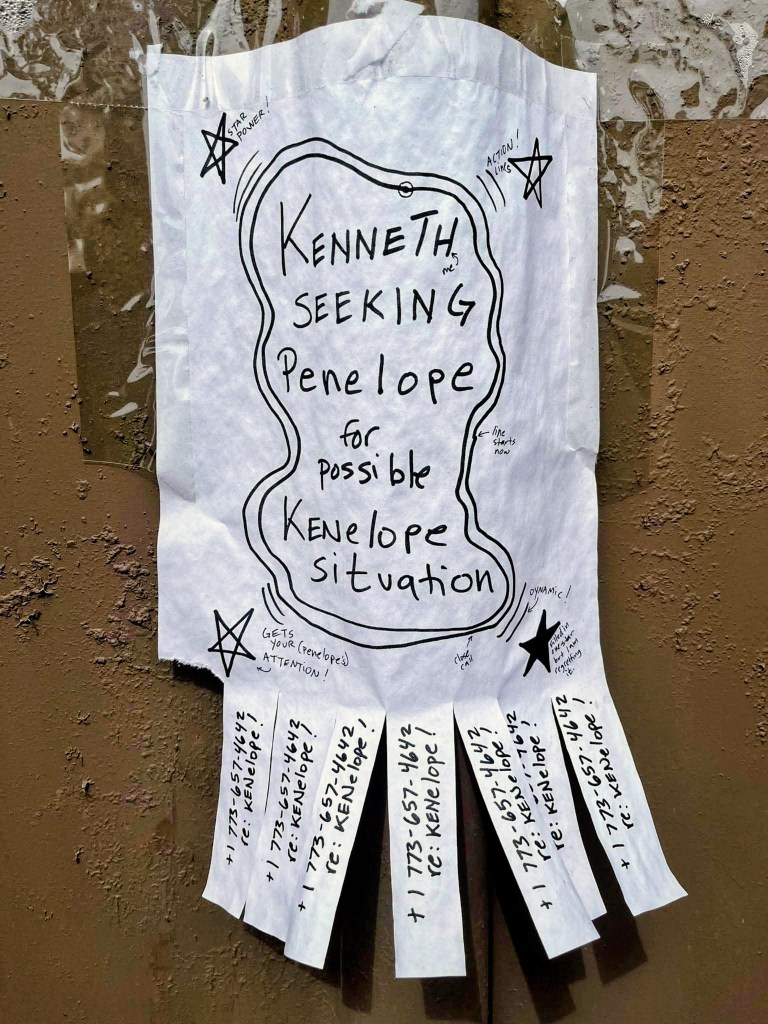 STAR
POWER!
ACTION!
LINES
KENNETH
me
SEEKING
Penelope
for
possible
KENelope
situation
line
starts
now
DYNAMIC!
GETS
YOUR (Penelope's)
ATTENTION!
close
call
filled in
but I am
regretting
it.
+1 773-657-4642
re: KENelope!
+1 773-657-4642
re: KENelope!
+1 773-657-4642
re: KENelope!
+1 773-657-4642
re: KENelope!
+1 773-657-4642
re: KENelope!
4642
re: KENelope!
+1 773-657-4642
re: KENelope!